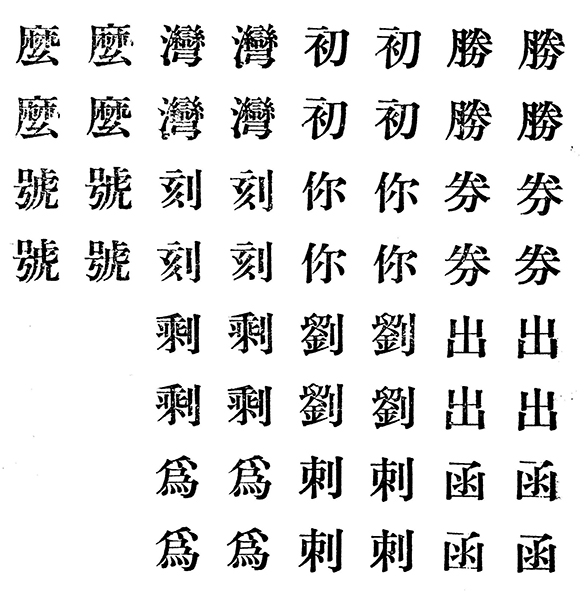 勝勝券券出出函函
勝勝券券出出函函
初初你你劉劉刺刺
初初你你劉劉刺刺
灣灣刻刻剩剩爲爲
灣灣刻刻剩剩爲爲
麼麼號號
麼麼號號